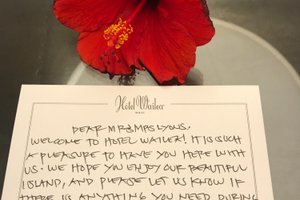 Hotel Wailea
MAUI
DEAR MR&MRS LYONS,
WELCOME TO HOTEL WAILEA! IT IS SUCH
A PLEASURE TO HAVE YOU HERE WITH
US. WE HOPE YOU ENJOY OUR BEAUTIFUL
ISLAND, AND PLEASE LET US KNOW IF
THERE IS ANYTHING YOU NEED DURING